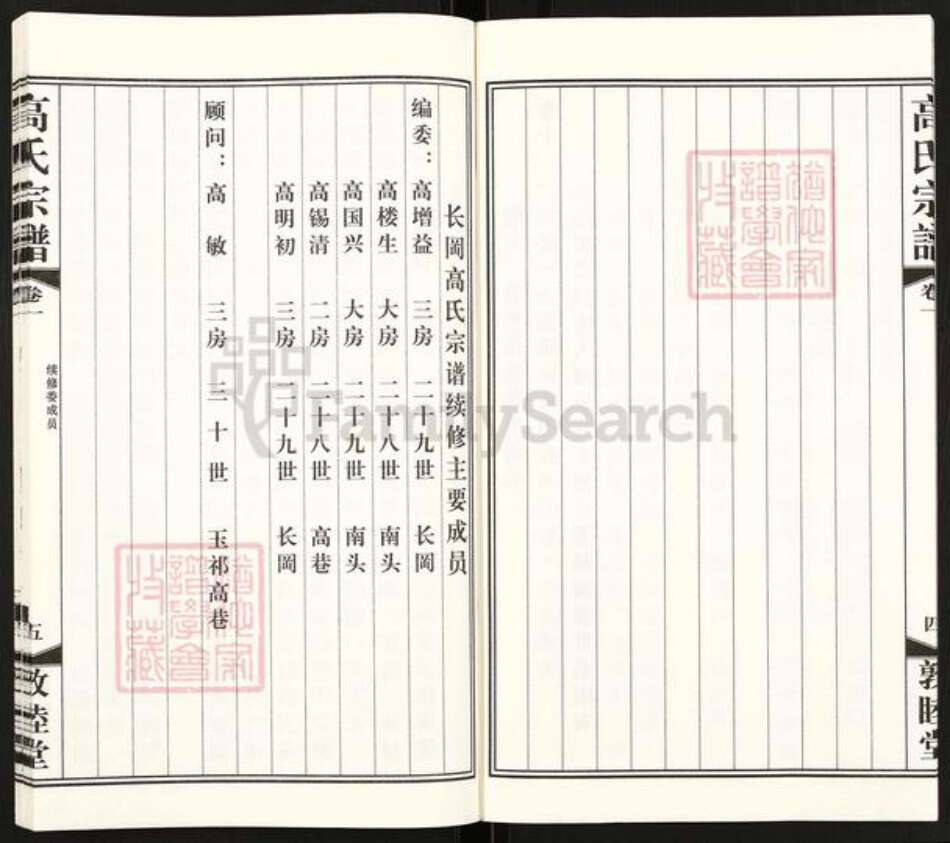 高氏宗谱
卷一
四
敦睦堂
长岡高氏宗谱续修主要成员
编委：高增益 三房 二十九世 长岡
高楼生 大房 二十八世 南头
高国兴 大房 二十九世 南头
高锡清 二房 二十八世 高巷
高明初 三房 二十九世 长岡
顾问：高 敏 三房 三十世 玉祁高巷
高氏宗譜
卷一
续修委成员
五
敦睦堂
FamilySearch
譜學會
收藏
譜學會
收藏